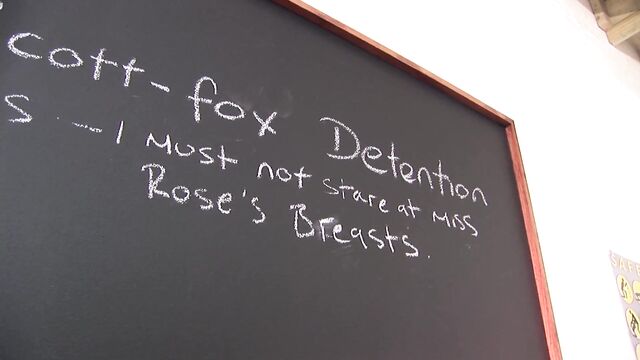 cott-fox Detention
s -- I Must not stare at Miss
Rose's Breasts.
SAFE